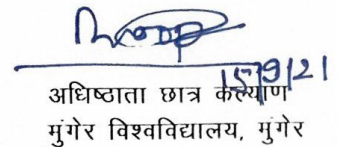 15/9/21
अधिष्ठाता छात्र कल्याण
मुंगेर विश्वविद्यालय, मुंगेर